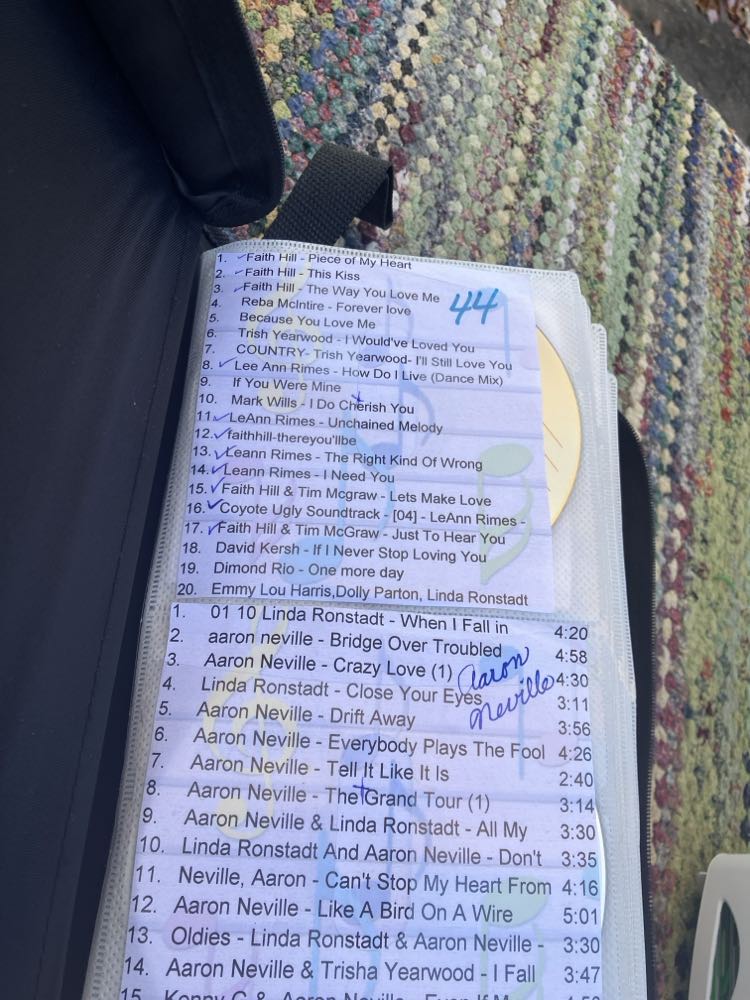 1. ✓Faith Hill - Piece of My Heart
2. ✓Faith Hill - This Kiss
3. ✓Faith Hill - The Way You Love Me
4. Reba McIntire - Forever love
44
5. Because You Love Me
6. Trish Yearwood - I Would've Loved You
7. COUNTRY- Trish Yearwood- I'll Still Love You
8. ✓ Lee Ann Rimes - How Do I Live (Dance Mix)
9. If You Were Mine
10. Mark Wills - I Do Cherish You
11. ✓LeAnn Rimes - Unchained Melody
12. ✓faithhill-thereyou'llbe
13. ✓Leann Rimes - The Right Kind Of Wrong
14. ✓Leann Rimes - I Need You
15. ✓Faith Hill & Tim Mcgraw - Lets Make Love
16. ✓Coyote Ugly Soundtrack - [04] - LeAnn Rimes -
17. ✓Faith Hill & Tim McGraw - Just To Hear You
18. David Kersh - If I Never Stop Loving You
19. Dimond Rio - One more day
20. Emmy Lou Harris,Dolly Parton, Linda Ronstadt
1. 01 10 Linda Ronstadt - When I Fall in 4:20
2. aaron neville - Bridge Over Troubled 4:58
3. Aaron Neville - Crazy Love (1) 4:30
Aaron
Neville
4. Linda Ronstadt - Close Your Eyes 3:11
5. Aaron Neville - Drift Away 3:56
6. Aaron Neville - Everybody Plays The Fool 4:26
7. Aaron Neville - Tell It Like It Is 2:40
8. Aaron Neville - The Grand Tour (1) 3:14
9. Aaron Neville & Linda Ronstadt - All My 3:30
10. Linda Ronstadt And Aaron Neville - Don't 3:35
11. Neville, Aaron - Can't Stop My Heart From 4:16
12. Aaron Neville - Like A Bird On A Wire 5:01
13. Oldies - Linda Ronstadt & Aaron Neville - 3:30
14. Aaron Neville & Trisha Yearwood - I Fall 3:47
15. Kenny G & Aaron Neville - Even If M